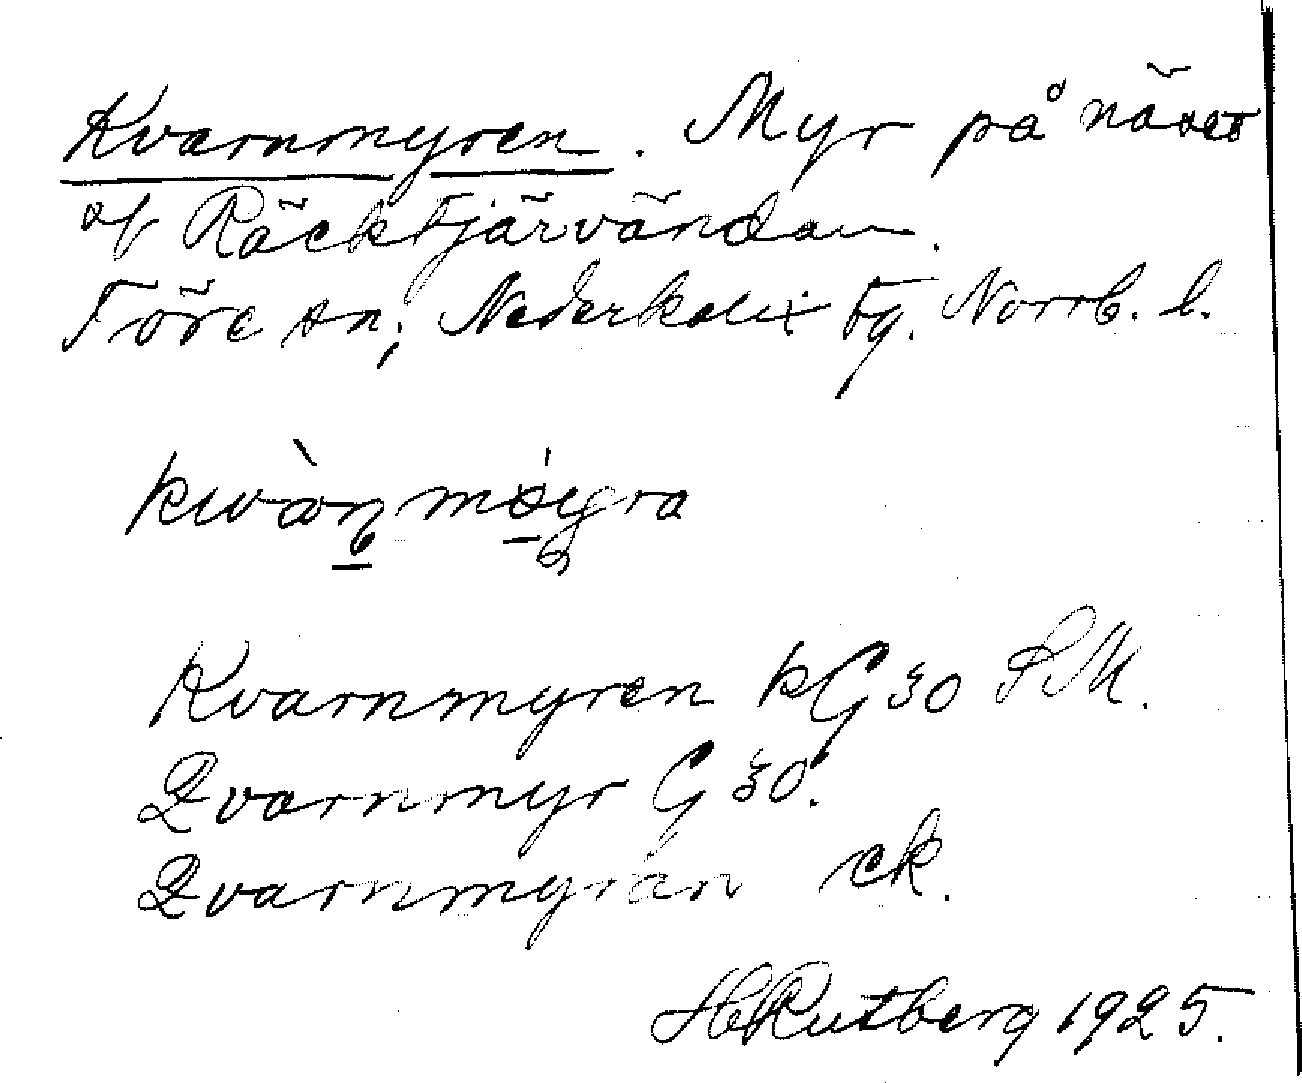 Kvarnmyren. Myr på näset
af Räcktjärvändan.
Töre sn; Nederkalix tg. Norrb. l.
Kvarnmyren kG30 SM.
Qvarnmyr G30.
Qvarnmyran ck.
HRutberg 1925.